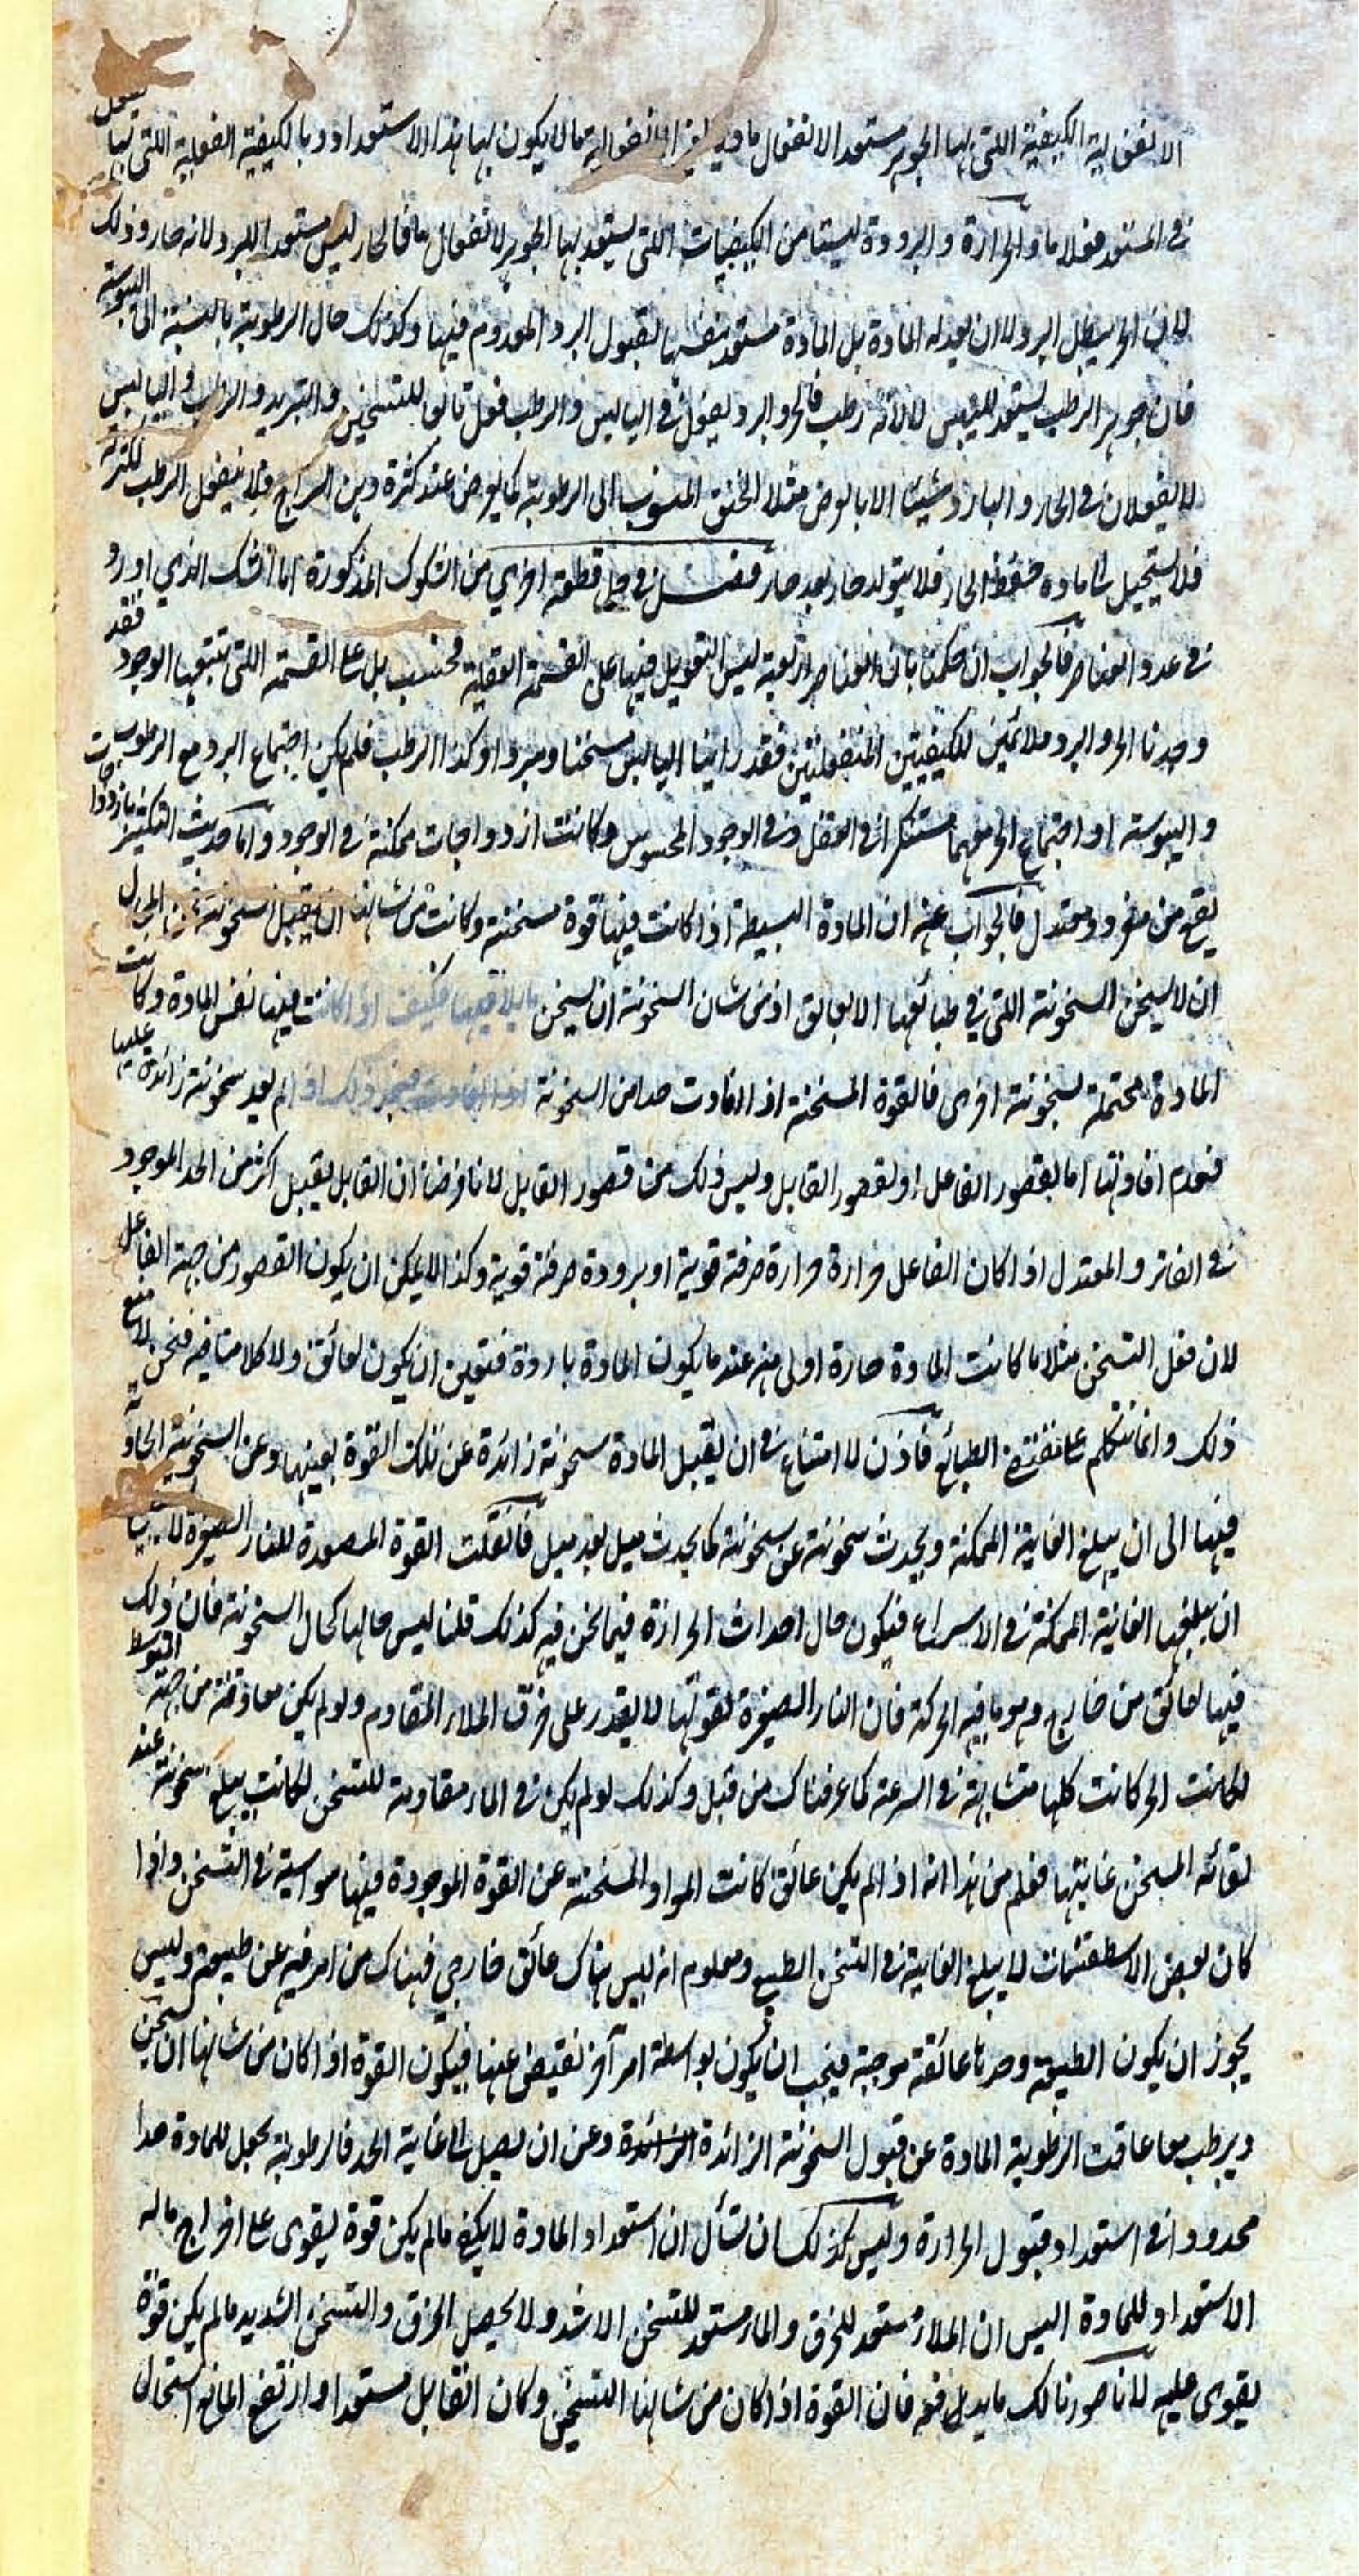 الانفعالية الكيفية اللتى بها الجوهر مستعد الانفعال ما لا يكون بها هذا الاستعداد وبالكيفية الفعلية اللتى بها يفعل
فى المستعد فعلا ما والحرارة والبرودة ليستا من الكيفيات اللتى يستعد بها الجوهر لانفعال ما فالحار ليس مستعدا للبرد لانه حار وذلك
لان الحر يبطل البرد لا ان يعد له المادة بل المادة مستعد بنفسها لقبول البرد المعدوم فيها وكذلك حال الرطوبة بالنسبة الى اليبوسة
فان جوهر الرطب يستعد لليبس لا لانه رطب فالحر والبرد يفعلان فى اليابس والرطب فعل ما للتسخين والتبريد والرطب واليابس
لا يفعلان فى الحار والبارد شيئا الا بالعرض مثلا الخنق المنسوب الى الرطوبة كما يعرض عند كثرة دهن السراج فلا ينفعل الرطب لكثرته
فلا يستحيل الى مادة حفظ الحار فلا يتولد حار بعد حار فصل فى حل قطعة اخرى من الشكوك المذكورة اما الشك الذي اورد
فى عدد العناصر فالجواب ان حكمنا بان العناصر اربعة ليس التعويل فيها على القسمة العقلية فحسب بل على القسمة اللتى يتبعها الوجود فقد
وجدنا الحر والبرد ملائمين للكيفيتين المنفعلتين فقد راينا اليابس مسخنا ومبردا وكذا الرطب فلم يكن اجتماع البرد مع الرطوبة
واليبوسة او اجتماع الحر معهما مستنكرا فى العقل وفى الوجود المحسوس وكانت ازدواجات ممكنة فى الوجود واما حديث التكثير بازدواجات
يقع من مفرد ومعتدل فالجواب عنه ان المادة البسيطة اذا كانت فيها قوة مسخنة وكانت من شانها ان يقبل سخونة فمن المحال
ان لا يسخن السخونة اللتى فى طبائعها الا بعائق اذ من شان السخونة ان يسخن ما يلاقيها فكيف اذا كانت فيها نفس المادة وكانت
المادة محتملة لسخونة اخرى فالقوة المسخنة اذا افادت حدا من السخونة لم يعد سخونة زائدة عليها
فعدم افادتها اما لقصور الفاعل او لقصور القابل وليس ذلك من قصور القابل لانا فرضنا ان القابل يقبل اكثر من الحد الموجود
فى الفاتر والمعتدل اذا كان الفاعل حرارة صرفة قوية او برودة صرفة قوية وكذا لا يمكن ان يكون القصور من جهة الفاعل
لان فعل التسخن مثلا ما كانت المادة حارة اولى منه عند ما يكون المادة باردة فتعين ان يكون لعائق ولا كلام لنا فيه فنحن لا نمنع
ذلك وانما نتكلم على مقتضى الطبائع فاذن لا امتناع فى ان يقبل المادة سخونة زائدة عن تلك القوة بعينها وعن السخونة الحادثة
فيها الى ان يبلغ الغاية الممكنة ويحدث سخونة عن سخونة كما يحدث ميل بعد ميل فان قلت القوة المصعدة للنار الصغيرة لا يجب
ان يبلغها الغاية الممكنة فى الاسراع فيكون حال احداث الحرارة فيما نحن فيه كذلك قلنا ليس حالها كحال السخونة فان ذلك
فيها لعائق من خارج وهو ما فيه الحركة فان النار الصغيرة لقوتها لا يقدر على خرق الملاء المقاوم ولو لم يكن معاوقة من جهة المتوسط
لكانت الحركات كلها متشابهة فى السرعة كما عرفناك من قبل وكذلك لو لم يكن فى الماء مقاومة للتسخن لكانت يبلغ سخونته عند
لقائه المسخن غايتها فعلم من هذا انه اذا لم يكن عائق كانت المواد المسخنة عن القوة الموجودة فيها مواسية فى التسخن واذا
كان لبعض الاسطقسات لا يبلغ الغاية فى التسخن الطبيعى ومعلوم انه ليس هناك عائق خارجي فهناك من امر فيه عن طبيعة وليس
يجوز ان يكون الطبيعة وحدها عائقة موجبة فيجب ان يكون بواسطة امر آخر نفيض عنها فيكون القوة اذا كان من شانها ان يسخن
ويرطب معا عاقت الرطوبة المادة عن قبول السخونة الزائدة الزائدة وعن ان يصل الى غاية الحد فالرطوبة يجعل للمادة حدا
محدودا فى استعداد قبول الحرارة وليس كذلك ان تسأل ان استعداد المادة لا يكفى ما لم يكن قوة يقوى على اخراج ما له
الاستعداد للمادة اليس ان الملاء مستعد للخرق والماء مستعد للتسخن الاشد ولا يحصل الخرق والتسخن الشديد ما لم يكن قوة
يقوى عليه لانا صورنا لك ما يدفعه فان القوة اذا كان من شانها التسخين وكان القابل مستعدا وارتفع المانع استحال